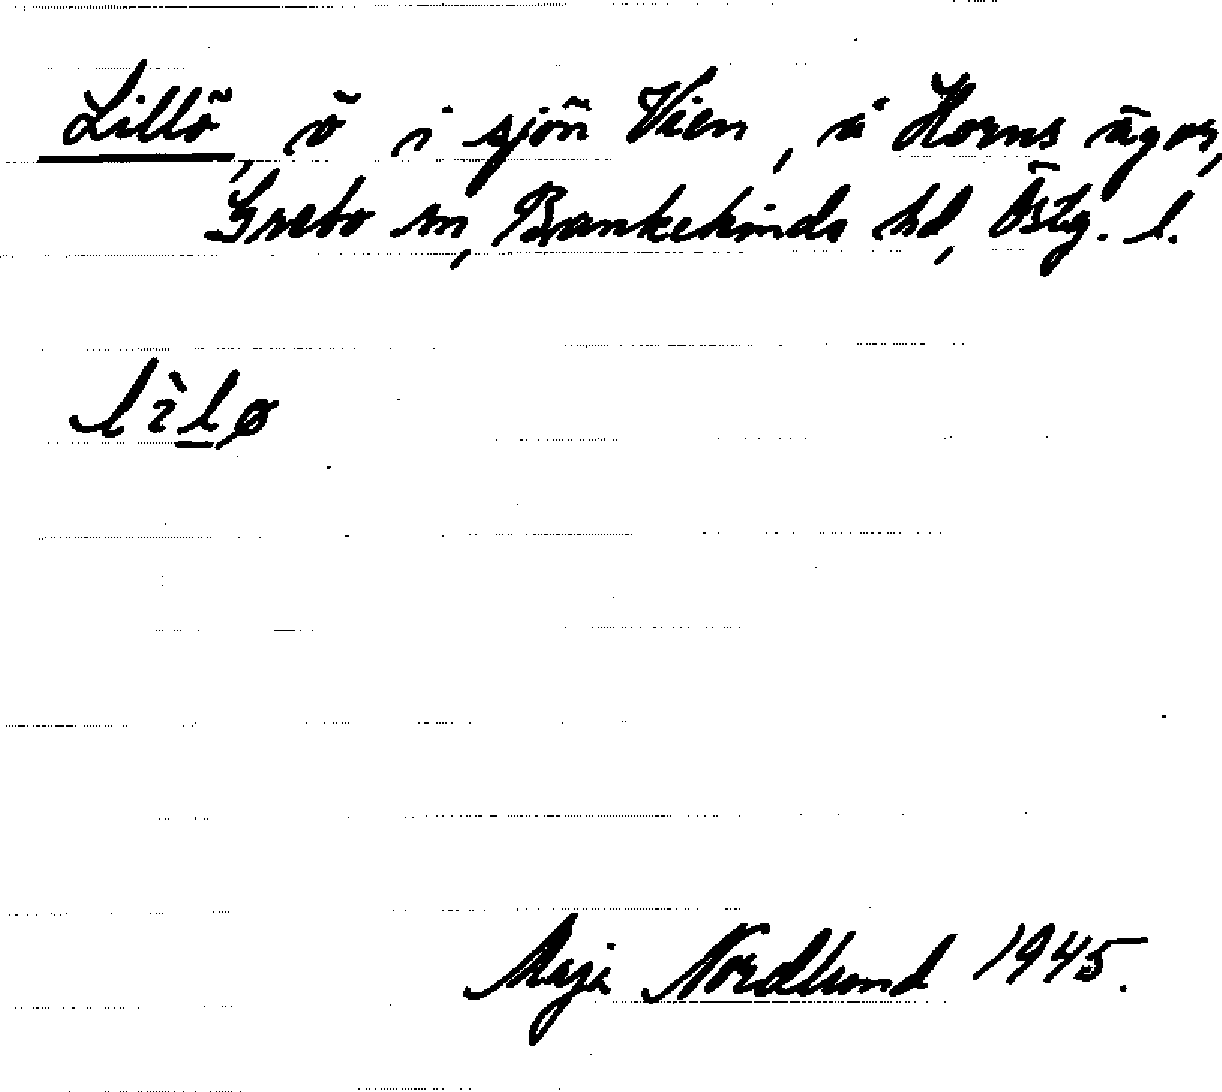 Lillö, ö i sjön Vien, å Horns ägor,
Grebo sn, Bankekinds hd, Östg. l.
lìlø
Maja Nordlund 1945.